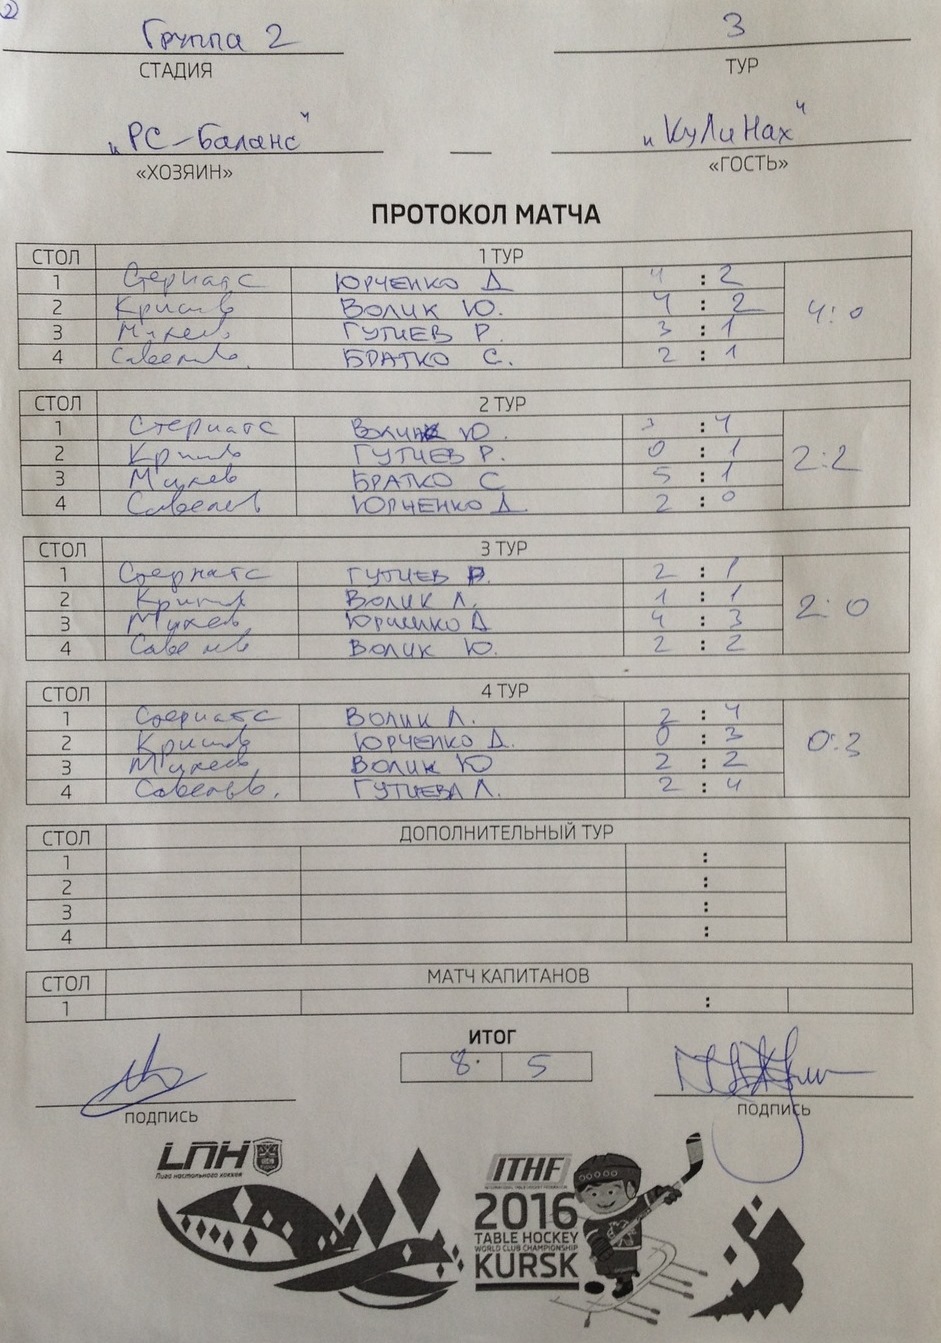 2
Группа 2 3
СТАДИЯ ТУР
"РС-Баланс" — "КуЛиНах"
«ХОЗЯИН» «ГОСТЬ»
ПРОТОКОЛ МАТЧА
СТОЛ 1 ТУР
1 Стернатс ЮРЧЕНКО Д 4 : 2
2 ВОЛИК Ю. 4 : 2 4:0
3 ГУТИЕВ Р. 3 : 1
4 БРАТКО С. 2 : 1
СТОЛ 2 ТУР
1 Стернатс ВОЛИК Ю. 3 : 4
2 ГУТИЕВ Р. 0 : 1 2:2
3 БРАТКО С 5 : 1
4 Савельев ЮРЧЕНКО Д 2 : 0
СТОЛ 3 ТУР
1 Стернатс ГУТИЕВ Р. 2 : 1
2 ВОЛИК Л. 1 : 1 2:0
3 ЮРЧЕНКО Д 4 : 3
4 ВОЛИК Ю. 2 : 2
СТОЛ 4 ТУР
1 Стернатс ВОЛИК Л. 2 : 4
2 ЮРЧЕНКО Д. 0 : 3 0:3
3 ВОЛИК Ю 2 : 2
4 ГУТИЕВА Л. 2 : 4
СТОЛ ДОПОЛНИТЕЛЬНЫЙ ТУР
1 :
2 :
3 :
4 :
СТОЛ МАТЧ КАПИТАНОВ
1 :
ИТОГ
8 5
ПОДПИСЬ ПОДПИСЬ
LПН
Лига настольного хоккея
ITHF
2016
TABLE HOCKEY
WORLD CLUB CHAMPIONSHIP
KURSK